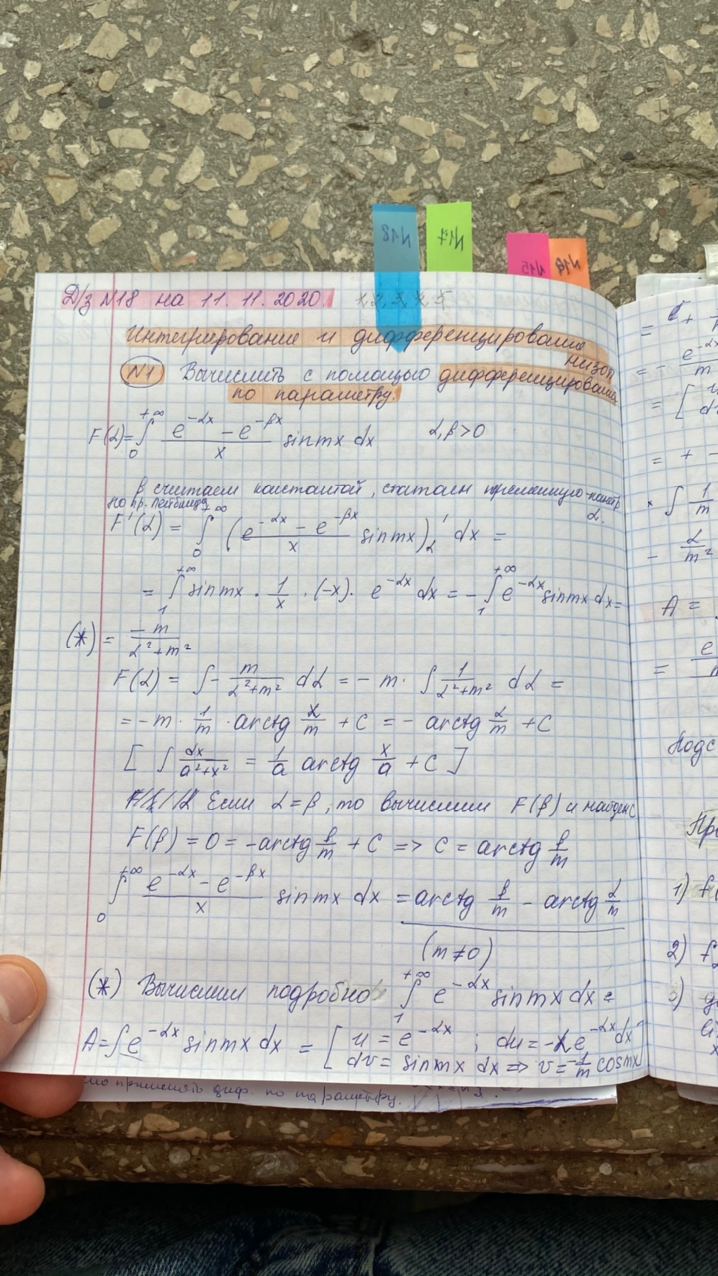 N18
N17
N15
N16
Д/з N18 на 11. 11. 2020. 1, 2, 3, 4, 5
Интегрирование и дифференцирование
низоп
N1 Вычислить с помощью дифференцирования
по параметру.
F(α) = ∫₀^{+∞} (e^{-αx} - e^{-βx})/x sinmx dx α, β > 0
β считаем константой, считаем
по пр. Лейбница α.
F'(α) = ∫₀^{+∞} ((e^{-αx} - e^{-βx})/x sinmx)'_α dx =
= ∫₁^{+∞} sinmx · 1/x · (-x) · e^{-αx} dx = - ∫₁^{+∞} e^{-αx} sinmx dx =
(*) = -m/(α²+m²)
F(α) = ∫ - m/(α²+m²) dα = - m · ∫ 1/(α²+m²) dα =
= -m · 1/m · arctg α/m + C = - arctg α/m + C
[ ∫ dx/(a²+x²) = 1/a arctg x/a + C ]
Если α = β, то вычислим F(β) и найдем C
F(β) = 0 = -arctg β/m + C => C = arctg β/m
∫₀^{+∞} (e^{-αx} - e^{-βx})/x sinmx dx = arctg β/m - arctg α/m
(m ≠ 0)
(*) Вычислим подробно ∫₁^{+∞} e^{-αx} sinmx dx =
A = ∫ e^{-αx} sinmx dx = [ u = e^{-αx} ; du = -αe^{-αx} dx
dv = sinmx dx => v = -1/m cosmx
применять диф. по параметру.
A =
Подс
1) f
2) f
3)